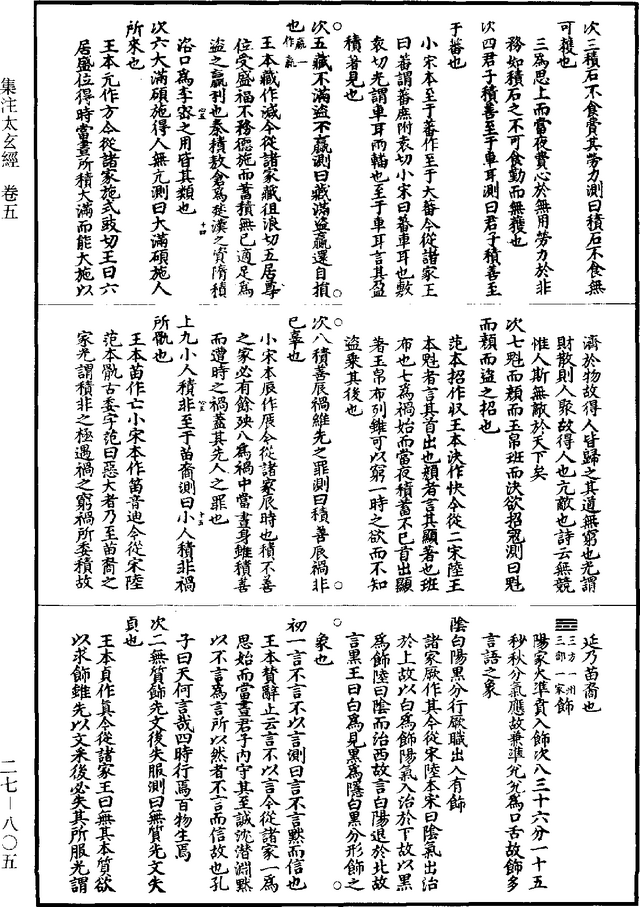 集注太玄經 卷五
二七-八〇五
次三積石不食費其勞力測曰積石不食無
可穫也
三為思上而當夜費心於無用勞力於非
務如積石之不可食勤而無獲也
次四君子積善至于車耳測曰君子積善至
于蕃也
小宋本至于蕃作至于大蕃今從諸家王
曰蕃謂蕃庶附袁切小宋曰蕃車耳也敷
袁切光謂車耳兩轓也至于車耳言其盈
積著見也
次五藏不滿盜不贏測曰藏滿盜贏還自損
也
王本藏作減今從諸家藏徂浪切五居尊
位受盛福不務德施而蓄積無已適足為
盜之贏利也秦積敖倉為楚漢之資隋積
洛口為李密之用皆其類也
次六大滿碩施得人無亢測曰大滿碩施人
所來也
王本元作方今從諸家施式豉切王曰六
居盛位得時當晝所積大滿而能大施以
濟於物故得人皆歸之其道無窮也光謂
財散則人聚故得人也亢敵也詩云無競
惟人斯無敵於天下矣
次七魁而顏而玉帛班而決欲招寇測曰魁
而顏而盜之招也
范本招作㕛王本決作快今從二宋陸王
本魁者言其首出也顏者言其顯著也班
布也七為禍始而當夜積蓄不已首出顯
著玉帛布列雖可以窮一時之欲而不知
盜乘其後也
次八積善辰禍維先之罪測曰積善辰禍非
己辜也
小宋本辰作戹今從諸家辰時也積不善
之家必有餘殃八為禍中當晝身雖積善
而遭時之禍蓋其先人之罪也
上九小人積非至于苗裔測曰小人積非禍
所骫也
王本苗作亡小宋本作笛音迪今從宋陸
范本骫古委字范曰惡大者乃至苗裔之
家光謂積非之極遇禍之窮禍所委積故
延乃苗裔也
三方一州三部一家飾
陽家木準賁入飾次八三十六分一十五
秒秋分氣應故兼準兊兊為口舌故飾多
言語之象
陰白陽黑分行厥職出入有飾
諸家厥作其今從宋陸本宋曰陰氣出治
於上故以白為飾陽氣入治於下故以黑
為飾陸曰陰而治西故言白陽退於北故
言黑王曰白為見黑為隱白黑分形飾之
象也
初一言不言不以言測曰言不言默而信也
王本贊辭止云言不以言今從諸家一為
思始而當晝君子內守其至誠沈潛淵默
以不言為言所以然者不言而信故也孔
子曰天何言哉四時行焉百物生焉
次二無質飾先文後失服測曰無質先文失
貞也
王本貞作真今從諸家王曰無其本質欲
以求飾雖先以文采後必失其所服光謂